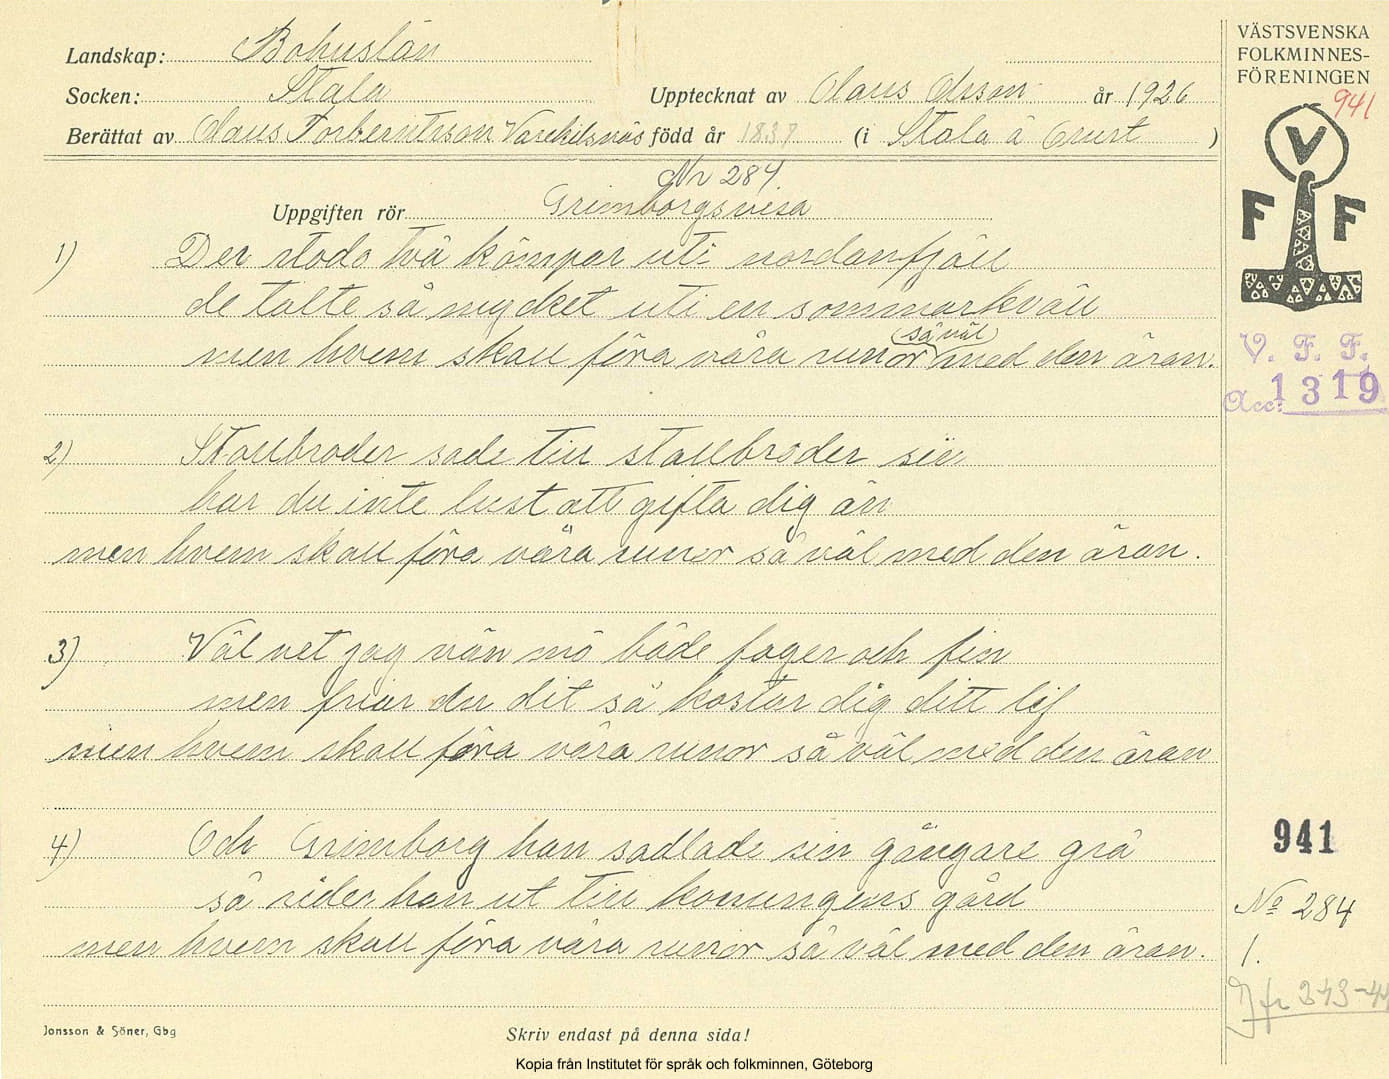 Landskap: Bohuslän
Socken: Stala
Upptecknat av Olaus Olsson år 1926
Berättat av Olaus Torberntsson Varekilsnäs född år 1837 (i Stala å Orust )
Nr 284.
Uppgiften rör Grimborgsvisa
1) Der stodo två kämpar uti nordanfjäll
de talte så mycket uti en sommarkväll
(så väl)
men hvem skall föra våra runor med den äran.
2) Stallbroder sade till stallbroder sin
har du inte lust att gifta dig än
men hvem skall föra våra runor så väl med den äran.
3) Väl vet jag vän mö både fager och fin
men friar du dit så kostar dig ditt lif
men hvem skall föra våra runor så väl med den äran
4) Och Grimborg han sadlade sin gångare grå
så rider han ut till konungens gård
men hvem skall föra våra runor så väl med den äran.
Jonsson & Söner, Gbg
Skriv endast på denna sida!
Kopia från Institutet för språk och folkminnen, Göteborg
VÄSTSVENSKA
FOLKMINNES-
FÖRENINGEN
941
V
F F
V. F. F.
Acc: 1319
941
No 284
1.
Jfr 343-44